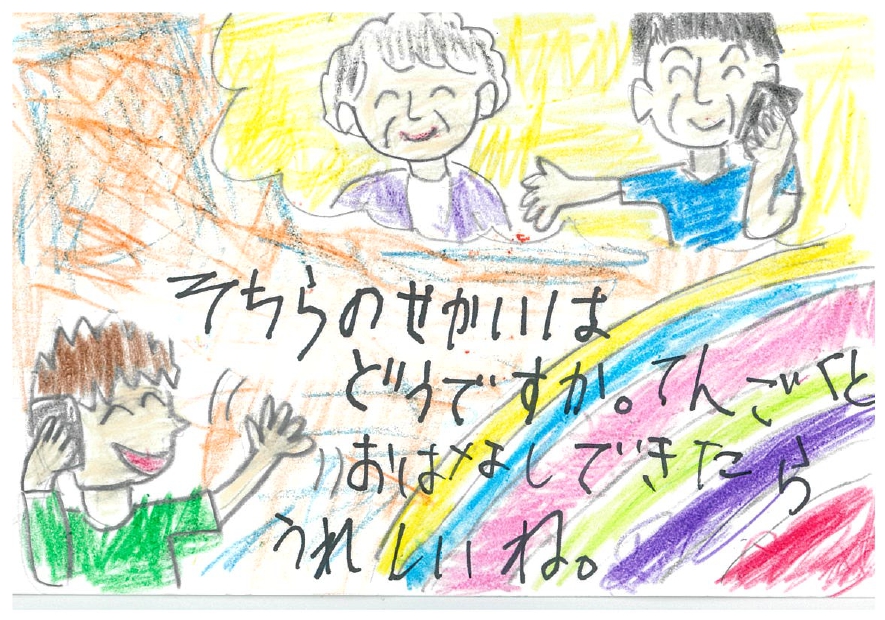 そちらのせかいは
どうですか。てんごくと
おはなしできたら
うれしいね。